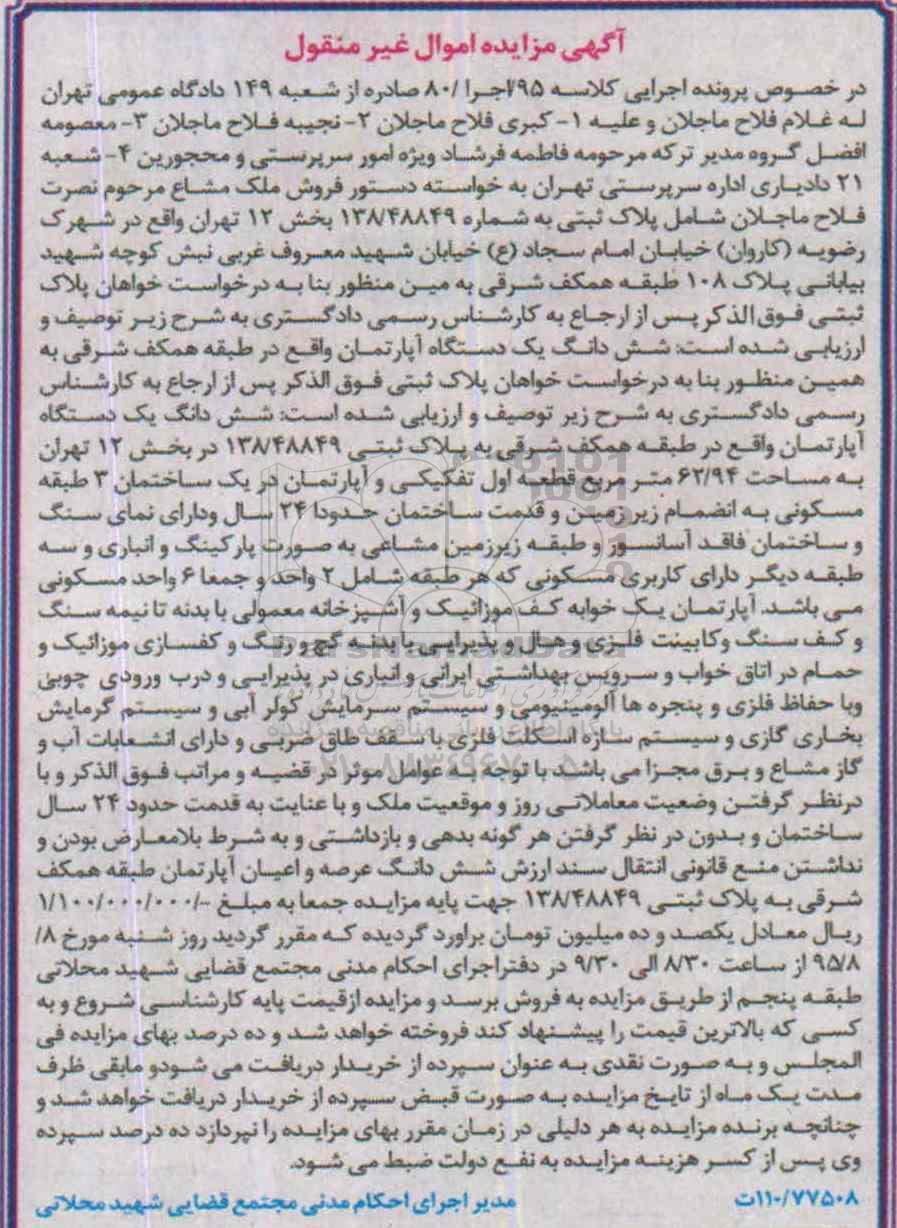 آگهی مزایده اموال غیر منقول
در خصوص پرونده اجرایی کلاسه ۹۵/اجرا /۸۰ صادره از شعبه ۱۴۹ دادگاه عمومی تهران
له غلام فلاح ماجلان و علیه ۱- کبری فلاح ماجلان ۲- نجیبه فلاح ماجلان ۳- معصومه
افضل گروه مدیر ترکه مرحومه فاطمه فرشاد ویژه امور سرپرستی و محجورین ۴- شعبه
۲۱ دادیاری اداره سرپرستی تهران به خواسته دستور فروش ملک مشاع مرحوم نصرت
فلاح ماجلان شامل پلاک ثبتی به شماره ۱۳۸/۴۸۸۴۹ بخش ۱۲ تهران واقع در شهرک
رضویه (کاروان) خیابان امام سجاد (ع) خیابان شهید معروف غربی نبش کوچه شهید
بیابانی پلاک ۱۰۸ طبقه همکف شرقی به مین منظور بنا به درخواست خواهان پلاک
ثبتی فوق الذکر پس از ارجاع به کارشناس رسمی دادگستری به شرح زیر توصیف و
ارزیابی شده است: شش دانگ یک دستگاه آپارتمان واقع در طبقه همکف شرقی به
همین منظور بنا به درخواست خواهان پلاک ثبتی فوق الذکر پس از ارجاع به کارشناس
رسمی دادگستری به شرح زیر توصیف و ارزیابی شده است: شش دانگ یک دستگاه
آپارتمان واقع در طبقه همکف شرقی به پلاک ثبتی ۱۳۸/۴۸۸۴۹ در بخش ۱۲ تهران
به مساحت ۶۲/۹۴ متر مربع قطعه اول تفکیکی و آپارتمان در یک ساختمان ۳ طبقه
مسکونی به انضمام زیر زمین و قدمت ساختمان حدودا ۲۴ سال ودارای نمای سنگ
و ساختمان فاقد آسانسور و طبقه زیرزمین مشاعی به صورت پارکینگ و انباری و سه
طبقه دیگر دارای کاربری مسکونی که هر طبقه شامل ۲ واحد و جمعا ۶ واحد مسکونی
می باشد. آپارتمان یک خوابه کف موزائیک و آشپزخانه معمولی با بدنه تا نیمه سنگ
و کف سنگ وکابینت فلزی و هال و پذیرایی با بدنه گچ و رنگ و کفسازی موزائیک و
حمام در اتاق خواب و سرویس بهداشتی ایرانی و انباری در پذیرایی و درب ورودی چوبی
وبا حفاظ فلزی و پنجره ها آلومینیومی و سیستم سرمایش کولر آبی و سیستم گرمایش
بخاری گازی و سیستم سازه اسکلت فلزی با سقف طاق ضربی و دارای انشعابات آب و
گاز مشاع و برق مجزا می باشد با توجه به عوامل موثر در قضیه و مراتب فوق الذکر و با
درنظر گرفتن وضعیت معاملاتی روز و موقعیت ملک و با عنایت به قدمت حدود ۲۴ سال
ساختمان و بدون در نظر گرفتن هر گونه بدهی و بازداشتی و به شرط بلامعارض بودن و
نداشتن منع قانونی انتقال سند ارزش شش دانگ عرصه و اعیان آپارتمان طبقه همکف
شرقی به پلاک ثبتی ۱۳۸/۴۸۸۴۹ جهت پایه مزایده جمعا به مبلغ -/۱/۱۰۰/۰۰۰/۰۰۰
ریال معادل یکصد و ده میلیون تومان براورد گردیده که مقرر گردید روز شنبه مورخ ۸/
۹۵/۸ از ساعت ۸/۳۰ الی ۹/۳۰ در دفتراجرای احکام مدنی مجتمع قضایی شهید محلاتی
طبقه پنجم از طریق مزایده به فروش برسد و مزایده ازقیمت پایه کارشناسی شروع و به
کسی که بالاترین قیمت را پیشنهاد کند فروخته خواهد شد و ده درصد بهای مزایده فی
المجلس و به صورت نقدی به عنوان سپرده از خریدار دریافت می شودو مابقی ظرف
مدت یک ماه از تایخ مزایده به صورت قبض سپرده از خریدار دریافت خواهد شد و
چنانچه برنده مزایده به هر دلیلی در زمان مقرر بهای مزایده را نپردازد ده درصد سپرده
وی پس از کسر هزینه مزایده به نفع دولت ضبط می شود.
۱۱۰/۷۷۵۰۸ت مدیر اجرای احکام مدنی مجتمع قضایی شهید محلاتی